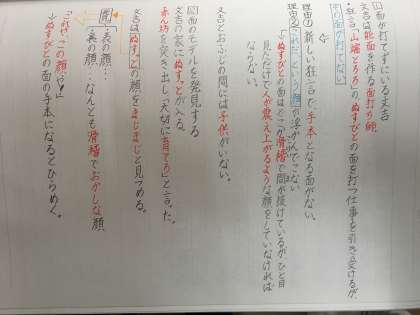 面が打てずにいる文吉
文吉は能面を作る面打ち師。
狂言「山端とろろ」のぬすびとの面を打つ仕事を引き受けるが、
その面が打てない
⇩
理由の新しい狂言で、手本となる面がない。
理由「これだ」という顔が浮かんでこない
「ぬすびとの面はどこか滑稽で間が抜けているが、ひと目
見ただけで人が震え上がるような顔をしていなければ
ならない。
文吉とおふじの間には子供がいない。
図面のモデルを発見する
文吉の家にぬすっとが入る。
赤ん坊を突き出し「大切に育てろ」と言った。
文吉はぬすっとの顔をまじまじと見つめる。
表の顔…
裏の顔…なんとも滑稽でおかしな顔
「これや、この顔や!」
↓ぬすびとの面の手本になるとひらめく。